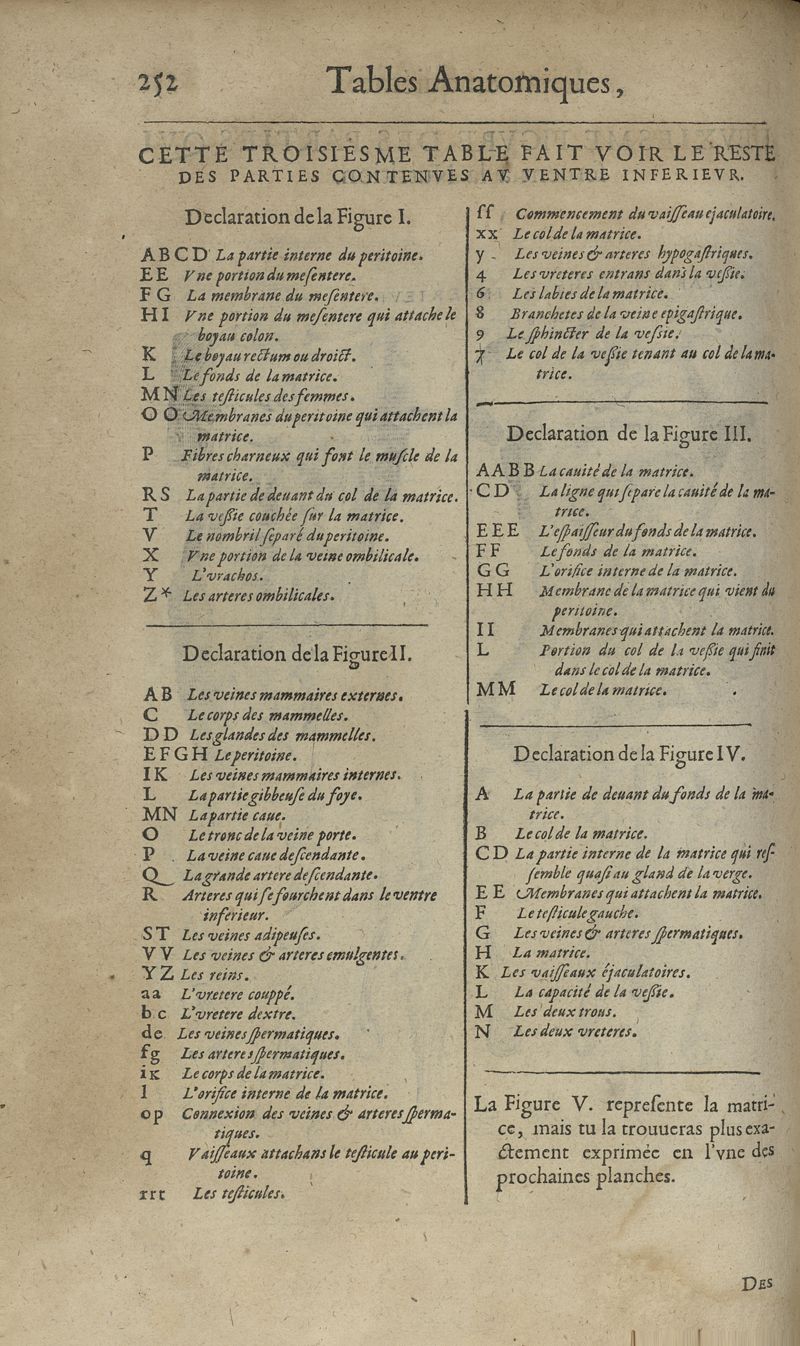 252 Tables Anatomiques,
CETTE TROISIESME TABLE FAIT VOIR LE RESTE
DES PARTIES CONTENVES AV VENTRE INFERIEVR.
Declaration de la Figure I.
A B C D La partie interne du peritoine.
E E Vne portion du meſentere.
F G La membrane du meſentere.
H I Vne portion du meſentere qui attache le
boyau colon.
K Le boyau rectum ou droict.
L Le fonds de la matrice.
M N Les teſticules des femmes.
O O Membranes du peritoine qui attachent la
matrice.
P Fibres charneux qui font le muſcle de la
matrice.
R S La partie de deuant du col de la matrice.
T La veſsie couchée ſur la matrice.
V Le nombril ſeparé du peritoine.
X Vne portion de la veine ombilicale.
Y L'vrachos.
Z * Les arteres ombilicales.
Declaration de la Figure II.
A B Les veines mammaires externes.
C Le corps des mammelles.
D D Les glandes des mammelles.
E F G H Le peritoine.
I K Les veines mammaires internes.
L La partie gibbeuſe du foye.
MN La partie caue.
O Le tronc de la veine porte.
P La veine caue deſcendante.
Q La grande artere deſcendante.
R Arteres qui ſe fourchent dans le ventre
inferieur.
S T Les veines adipeuſes.
V V Les veines & arteres emulgentes.
Y Z Les reins.
a a L'vretere couppé.
b c L'vretere dextre.
d e Les veines ſpermatiques.
f g Les arteres ſpermatiques.
i K Le corps de la matrice.
l L'orifice interne de la matrice.
o p Connexion des veines & arteres ſperma-
tiques.
q Vaiſſeaux attachans le teſticule au peri-
toine.
r r t Les teſticules.
ſſ Commencement du vaiſſeau ejaculatoire.
x x Le col de la matrice.
y Les veines & arteres hypogaſtriques.
4 Les vreteres entrans dans la veſsie.
6 Les labies de la matrice.
8 Branchetes de la veine epigaſtrique.
9 Le ſphincter de la veſsie.
7 Le col de la veſsie tenant au col de la ma-
trice.
Declaration de la Figure III.
A A B B La cauité de la matrice.
C D La ligne qui ſepare la cauité de la ma-
trice.
E E E L'eſpaiſſeur du fonds de la matrice.
F F Le fonds de la matrice.
G G L'orifice interne de la matrice.
H H Membrane de la matrice qui vient du
peritoine.
I I Membranes qui attachent la matrice.
L Portion du col de la veſsie qui finit
dans le col de la matrice.
M M Le col de la matrice.
Declaration de la Figure IV.
A La partie de deuant du fonds de la ma-
trice.
B Le col de la matrice.
C D La partie interne de la matrice qui reſ-
ſemble quaſi au gland de la verge.
E E Membranes qui attachent la matrice.
F Le teſticule gauche.
G Les veines & arteres ſpermatiques.
H La matrice.
K Les vaiſſeaux éjaculatoires.
L La capacité de la veſsie.
M Les deux trous.
N Les deux vreteres.
La Figure V. repreſente la matri-
ce, mais tu la trouueras plus exa-
ctement exprimée en l'vne des
prochaines planches.
DES